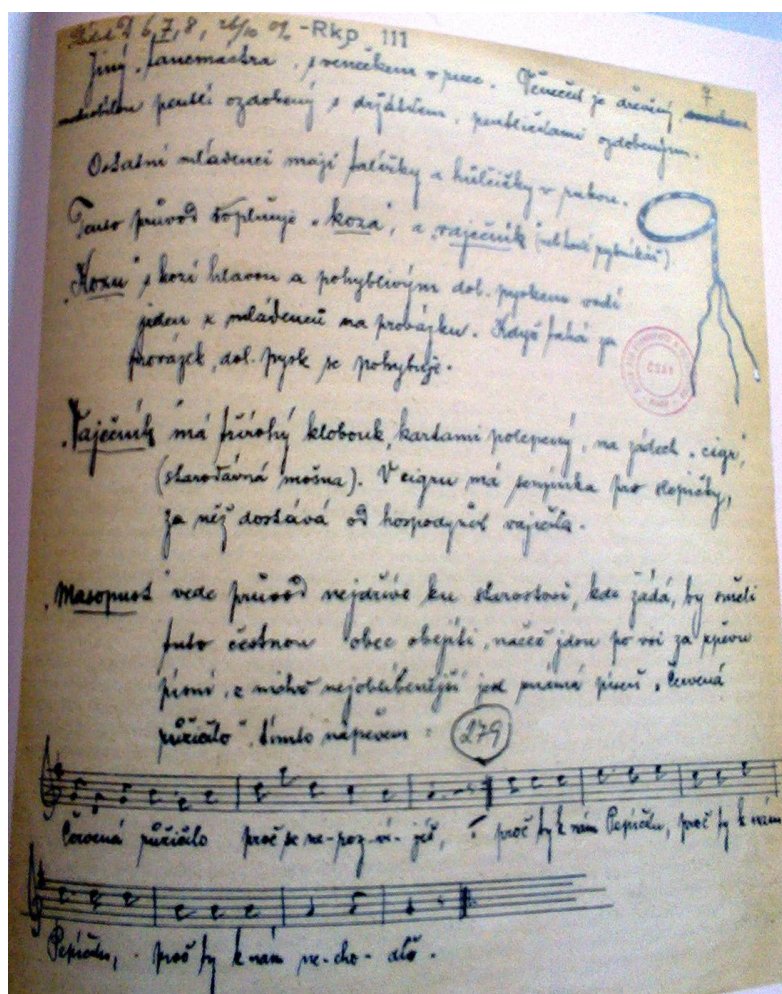 6, 7, 8, -Rkp 111
7
Jiný „tancmastra“, s venečkem v ruce. Veneček je dřevěný,
pentlí ozdobený s držátkem, pentličkami ozdobeným.
Ostatní mládenci mají talířky a hůlčičky v rukou.
Tento průvod doplňuje „koza“, a „vaječník“
„Kozu“ s kozí hlavou a pohyblivým dol. pyskem vodí
jeden z mládenců na provázku. Když tahá za
provázek, dol. pysk se pohybuje.
„Vaječník“ má širohý klobouk, kartami polepený, na zádech „cigr“,
(starodávná mošna). V cigru má semínka pro slepičky,
za něž dostává od hospodyněk vajíčka.
„Masopust“ vede průvod nejdříve ku starostovi, kde žádá, by směli
tuto čestnou obec obejíti, načež jdou po vsi za zpěvu
písní, z nichž nejoblíbenější jest známá píseň „Červená
růžičko“, tímto nápěvem: 279
Červená růžičko proč se ne-roz-ví-jíš, proč ty k nám Pepíčku, proč ty k nám
Pepíčku, proč ty k nám ne-cho-díš.
ČSAV